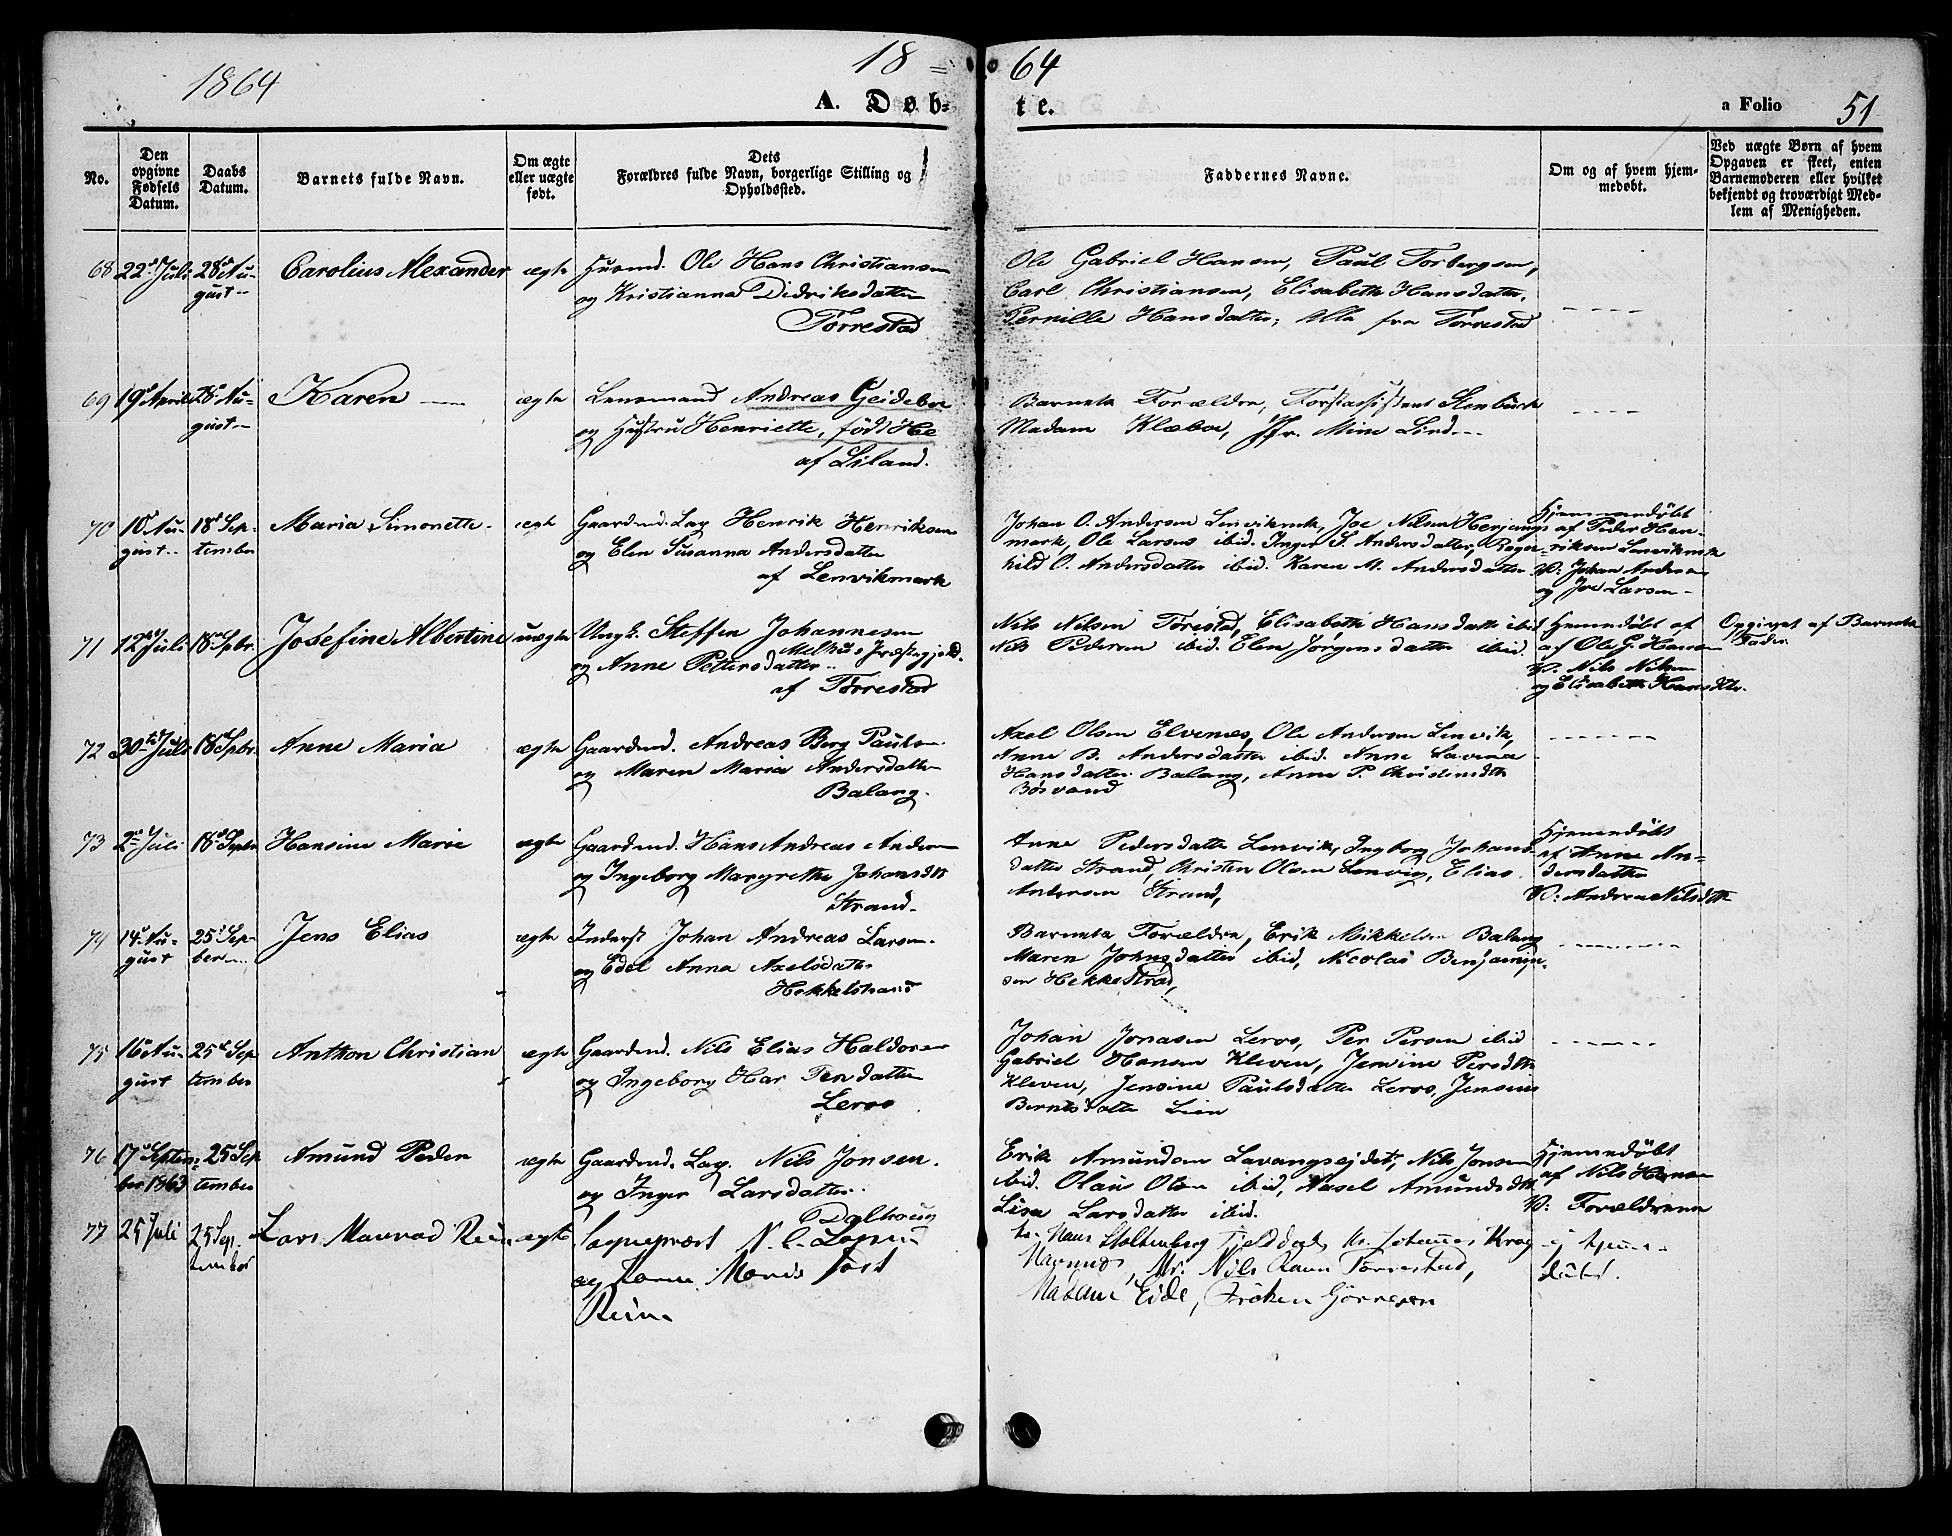 1864
18 = 64
A. Døb-
te.
a Folio 51
No.
Den opgivne Fødsels Datum.
Daabs Datum.
Barnets fulde Navn.
Om ægte eller uægte født.
Dets Forældres fulde Navn, borgerlige Stilling og Opholdssted.
Faddernes Navne.
Om og af hvem hjemmedøbt.
Ved uægte Børn af hvem Opgaven er skeet, enten Barnemoderen eller hvilket bekjendt og troværdigt Medlem af Menigheden.
68 22de Juli 28de August Carolius Alexander ægte Husmd. Ole Hans Christiansen
og Kristianna Didriksdatter
Torrestad
Ole Gabriel Hansen, Paul Torbergsen,
Carl Christiansen, Elisabeth Hansdatter,
Pernille Hansdatter, Alle fra Torrestad
69 19de April 28de August Karen ægte Lensmand Andreas Geideboe
og Hustru Henriette, født
af Liland.
Barnets Forældre, Forstassistent Stenbuck
Madam Klæboe, Jfr. Mine Lind
70 10de August 18de September Maria Simonette ægte Gaardmd. Lap Henrik Henriksen
og Elen Susanna Andersdatter
af Lenvikmark
Johan O. Andersen Lenvikmrk, Joe Nilsen Herjangs
mark, Ole Larsen ibid. Inger S. Andersdatter, Ragn-
hild O. Andersdatter ibid. Karen M. Andersdatter
Hjemmedøbt
af Peder Hen-
riksen Lenvikmrk
V: Johan Andersen
og Joe Larsen
71 12te Juli 18de Spbr. Josefine Albertine uægte Ungk. Steffen Johannesen
Melhus Præstegjeld.
og Anne Pettersdatter
af Torrestad
Nils Nilsen Torestad, Elisabeth Hansdatter ibid
Nils Pedersen ibid. Elen Jørgensdatter ibid.
Hjemmedøbt af
af Ole G. Hansen
V. Nils Nilsen
og Elisabeth Hansdtr.
Opgivet af Barnets
Fader
72 30te Juli 18de Spbr. Anne Maria ægte Gaardmd. Andreas Berg Pauls.
og Maren Maria Andersdatter
Balang.
Axel Olsen Elvenes, Ole Andersen Lenvik,
Anne B. Andersdatter ibid. Anne Lavina
Hansdatter Balang, Anne P. Christensdtr
Bøsvand
73 2den Juli 18de Septbr Hansine Marie ægte Gaardmd. Hans Andreas Andersen
og Ingeborg Margrethe Johansdtr
Strand
Anne Pedersdatter Lenvik, Ingborg Johans-
datter Strand, Christen Olsen Lenvig, Elias
Andersen Strand,
Hjemmedøbt
af Anne An-
dersdatter
V: Andrea Nilsdtr
74 14de August 25de Sepber Jens Elias ægte Inderst Johan Andreas Larsen
og Edel Anna Axelsdatter
Hekkelstrand
Barnets Forældre, Erik Mikkelsen Balang
Maren Johnsdatter ibid, Nicolai Benjamin-
sen Hekkestrad,
75 16de August 25de September Anthon Christian ægte Gaardmd. Nils Elias Haldorsen
og Ingeborg Mar Persdatter
Leros
Johan Jonasen Leros, Per Persen ibid
Gabriel Hansen Kleven, Jensine Persdtr
Kleven, Jensine Paulsdatter Leros, Jensine
Berntsdatter Lien
76 17de September 1863 25 September Amund Peder ægte Gaardmd. Lap. Nils Jonsen.
og Inger Larsdatter
Erik Amundsen Lavangseidet, Nils Jonsen
ibid. Olaus Olsen ibid, Amundsdtr
Lisa Larsdatter ibid.
Hjemmedøbt
af Nils Hansen
V: Forældrene
77 25 Juli 25 September Lars Rein ægte Sognepræst N. C.
og
Rein
Hr. Hans Stoltenberg Fjelddal, Hr. Johannes Krog
Mr. Nils Ravn Torrestad,
Madame Eide, Frøken Gørresen
ej hjemme-
døbt.